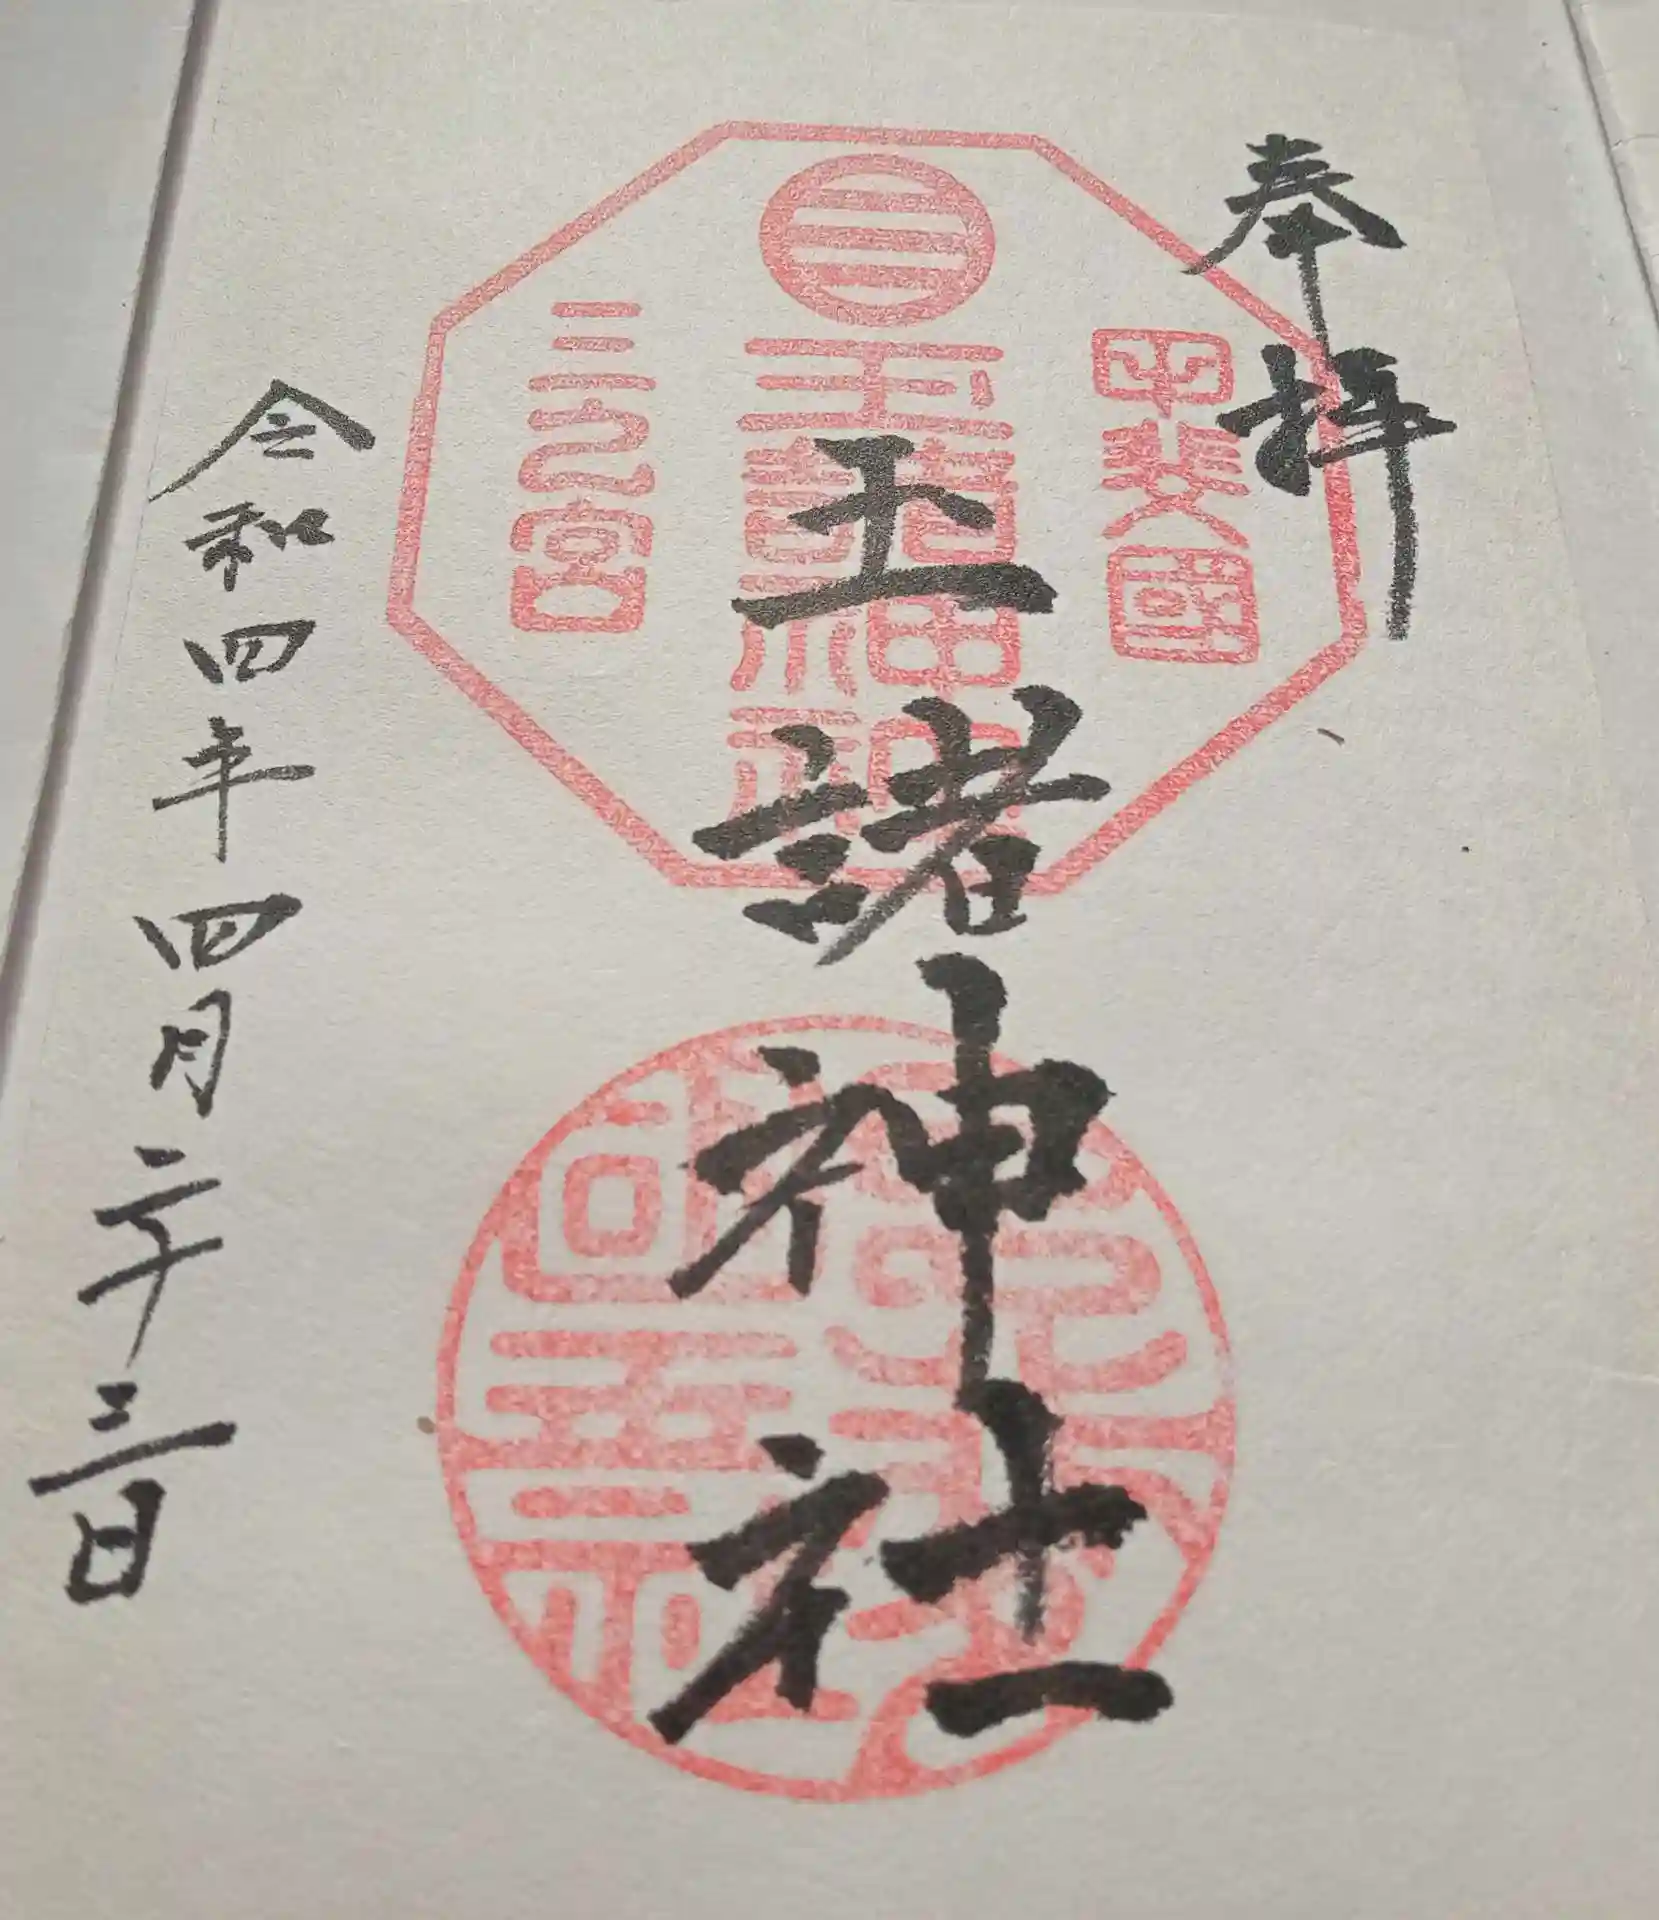 奉拝
甲斐國
玉諸神社
三之宮
玉諸神社
令和四年四月二十三日